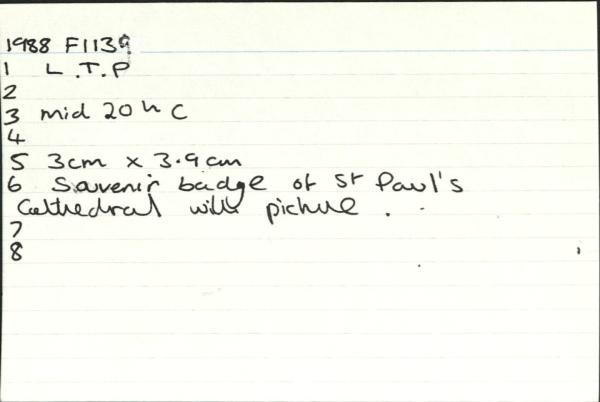 1988 F1139
1 L.T.P
2
3 mid 20th C
4
5 3cm x 3.9cm
6 Souvenir badge of St Paul's
Cathedral with picture.
7
8